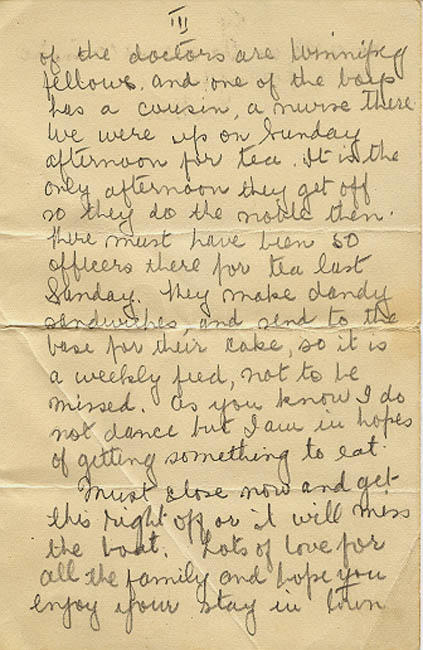 III
of the doctors are Winnipeg
fellows, and one of the boys
has a cousin, a nurse there
We were up on Sunday
afternoon for tea. It is the
only afternoon they get off
so they do the noble then.
There must have been 50
officers there for tea last
Sunday. They make dandy
sandwiches, and send to the
base for their cake, so it is
a weekly feed, not to be
missed. As you know I do
not dance but I am in hopes
of getting something to eat.
Must close now and get
this right off or it will miss
the boat. Lots of love for
all the family and hope you
enjoy your stay in town